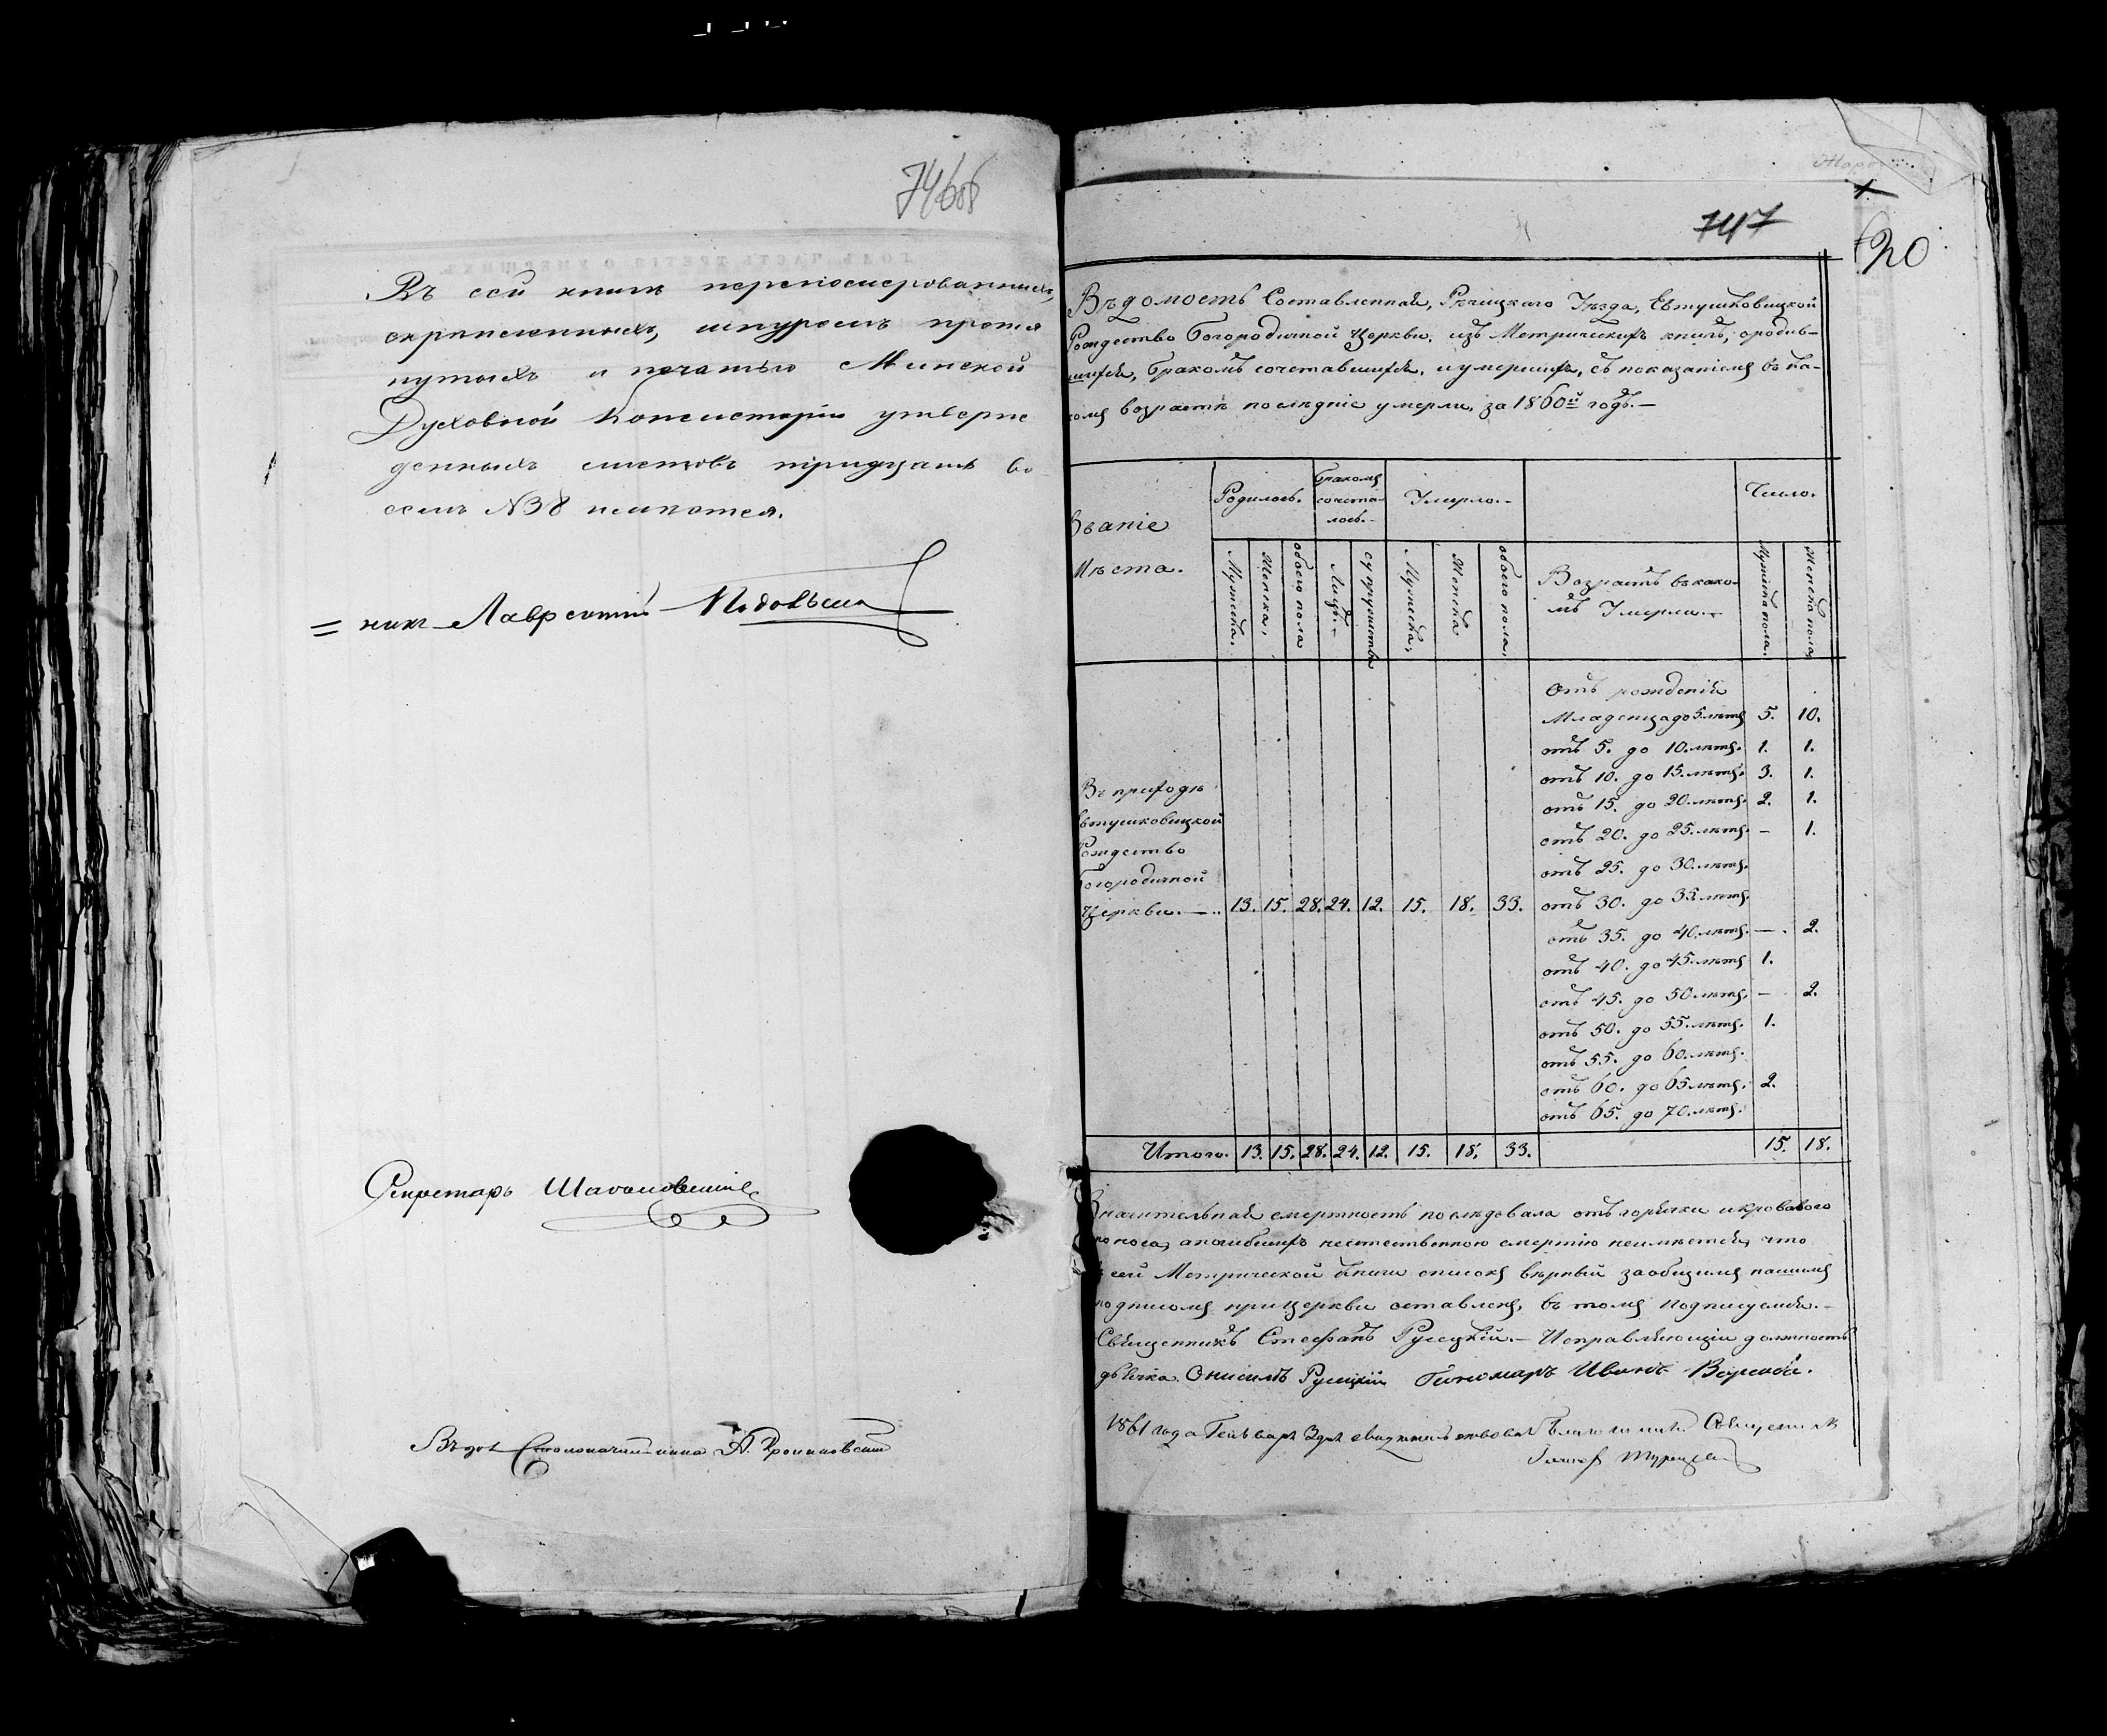 74606
Въ сей книги перенумерованныхъ,
скрепленныхъ, шнуромъ протя
нутыхъ и печатью Минской
Духовной Консисторіи утверж
денныхъ листовъ тридцать во
семь №38 имѣются.
Лаврентій
Секретарь
Столоначальника
747
20
Вѣдомость Составленная, Рѣчицкаго Уѣзда, Евтушковицкой
Рождество Богородичной Церкви, изъ Метрическихъ книгъ, ородив-
шихся, бракомъ сочетавшихся, иумершихъ, съ показаніемъ въ ка-
комъ возрастѣ послѣдніе умерли, за 1860й годъ.—
Званіе
Мѣста.
Родилось.
Бракомъ
сочета-
лось.—
Умерло.—
Число.
Мужеска.
Женска,
обоего пола
Лицъ.—
супружествъ
Мужеска,
Женска
обоего пола,
Возрастъ въкако-
мъ Умерли.—
Мужеска пола.
Женска пола,
Отъ рожденія
Младенца до 5. лѣтъ 5. 10.
отъ 5. до 10. лѣтъ. 1. 1.
отъ 10. до 15. лѣтъ. 3. 1.
отъ 15. до 20. лѣтъ. 2. 1.
отъ 20. до 25. лѣтъ. — 1.
отъ 25. до 30. лѣтъ.
отъ 30. до 35. лѣтъ.
отъ 35. до 40. лѣтъ. — 2.
отъ 40. до 45. лѣтъ 1.
отъ 45. до 50. лѣтъ. — 2.
отъ 50. до 55. лѣтъ. 1.
отъ 55. до 60. лѣтъ.
отъ 60. до 65 лѣтъ. 2.
отъ 65. до 70. лѣтъ.
Въ приходѣ
Евтушковицкой
Рождество
Богородичной
Церкви.— 13. 15. 28. 24. 12. 15. 18. 33.
Итого. 13. 15. 28. 24. 12. 15. 18. 33. 15. 18.
Значительная смертность послѣдовала отъ горячки икроваваго
поноса, апогибшихъ неестественною смертію неимѣется, что
сей Метрической Книги списокъ вѣрный заобщимъ нашимъ
подписомъ прицеркви оставленъ, въ томъ подписуемся.—
Священникъ Стефанъ Русецкій.— Исправляющій должность
дьячка Онисимъ Русецкій Пономарь Иванъ
1861 года Генваря 3 дня свидѣтельствовалъ Благочинный Священникъ